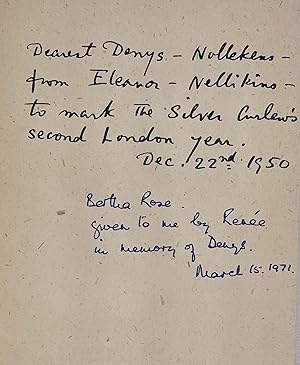 Dearest Denys – Nollekens –
from Eleanor – Nellikins –
to mark The Silver Curlew's
second London year.
Dec. 22nd 1950
Bertha Rose.
given to me by Renée
in memory of Denys.
March 15. 1971.